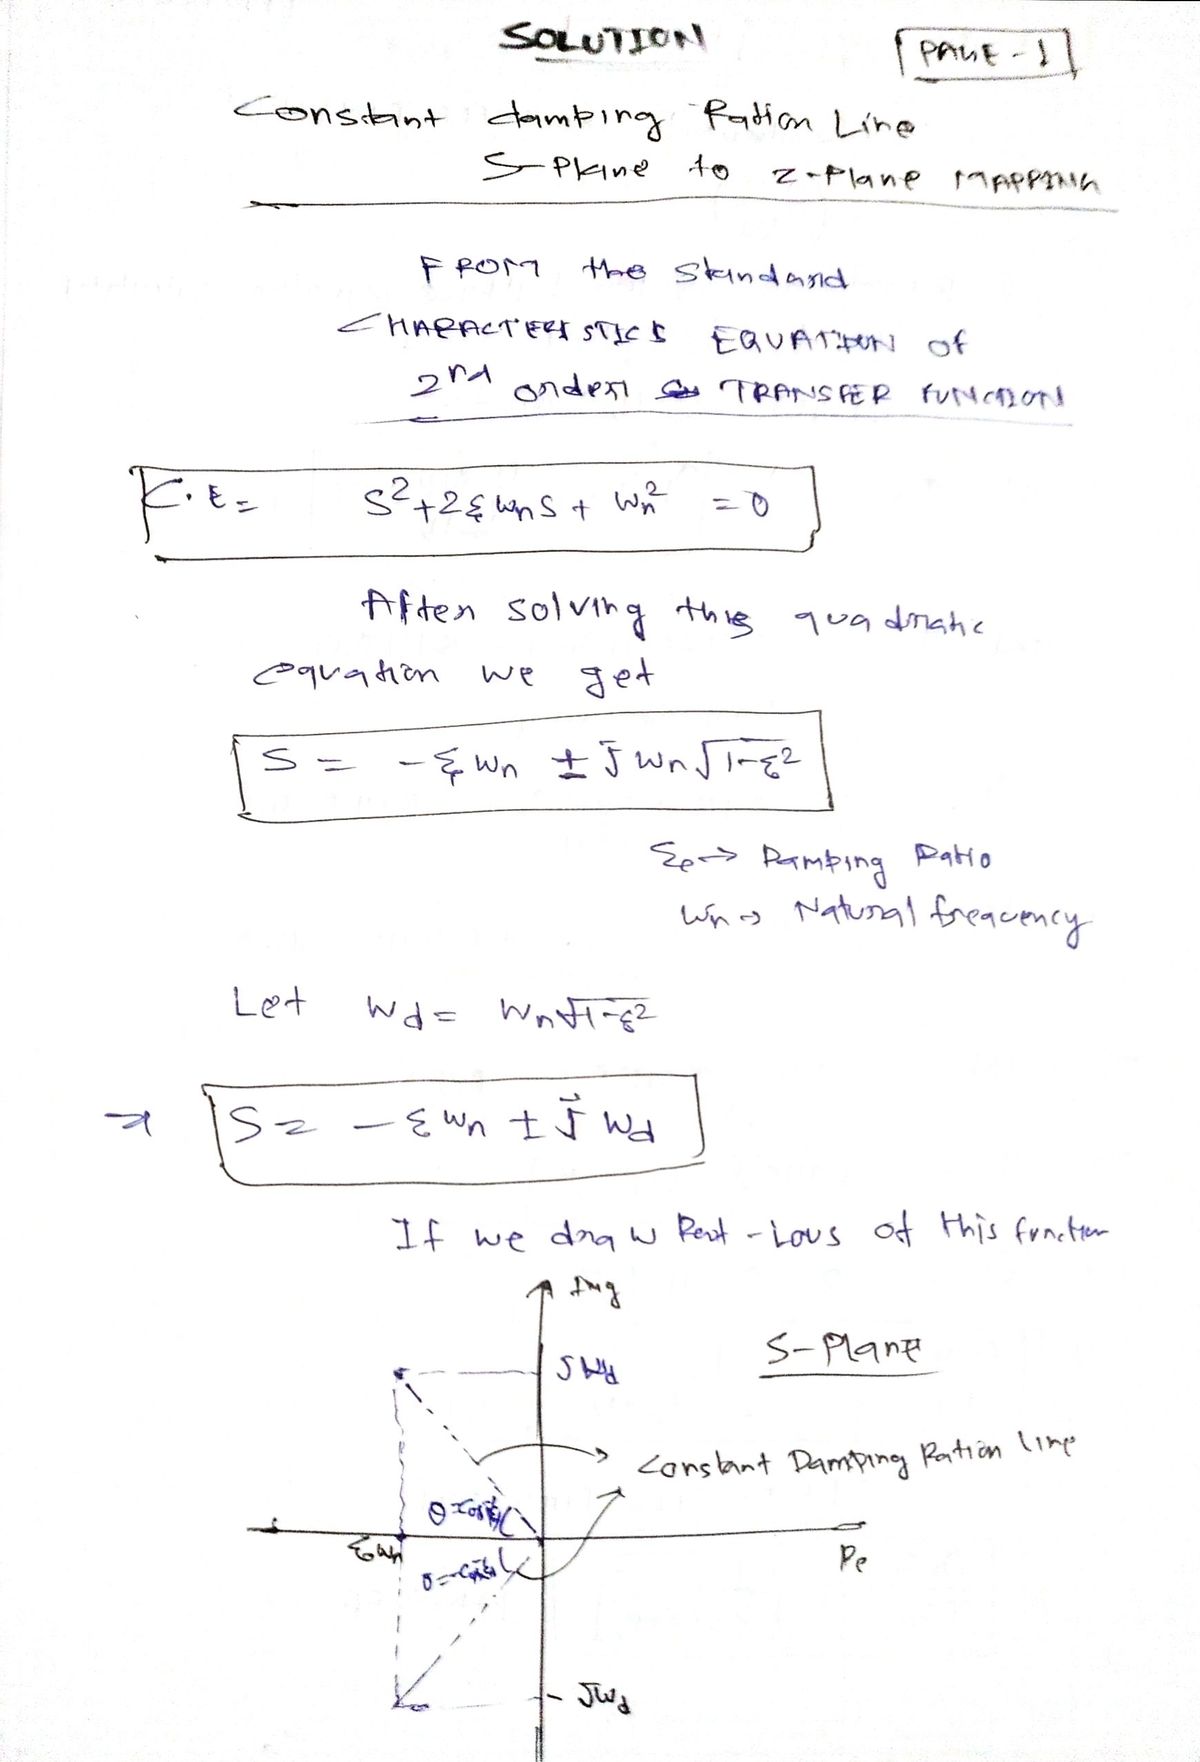 SOLUTION
PAGE-1
Constant damping Ration Line
S-Plane to z-Plane MAPPING
FROM the Standard
CHARACTERISTICS EQUATION of
2nd order TRANSFER FUNCTION
C.E = S²+2ξωnS + ωn² = 0
After solving this quadratic
equation we get
S = -ξωn ± jωn√1-ξ²
ξ → Damping Ratio
ωn → Natural frequency
Let ωd = ωn√1-ξ²
⇒ S = -ξωn ± jωd
If we draw Root-Lous of this function
Img
S-Plane
jωd
Constant Damping Ration line
θ=cos⁻¹ξ
ξωn
Re
-jωd